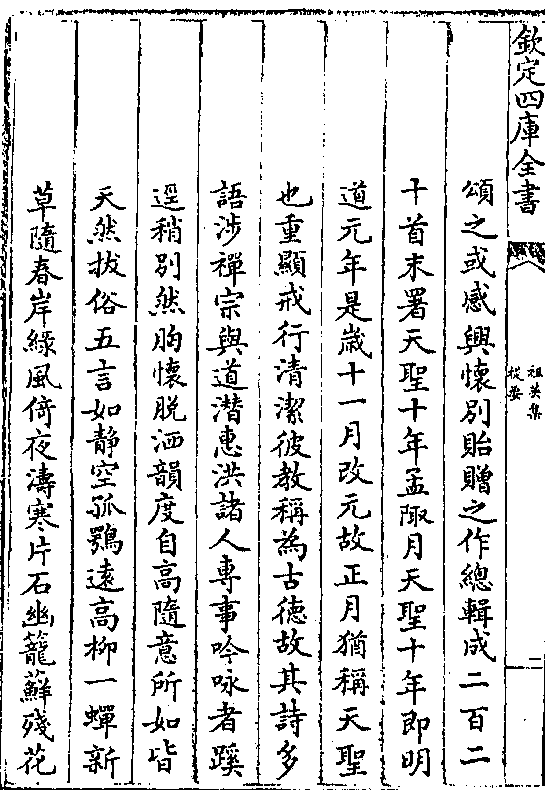 欽定四庫全書
祖英集
提要
二
頌之或感興懷別貽贈之作總輯成二百二
十首末署天聖十年孟陬月天聖十年即明
道元年是歲十一月改元故正月猶稱天聖
也重顯戒行清潔彼教稱為古德故其詩多
語涉禪宗與道潛惠洪諸人專事吟咏者蹊
逕稍別然胸懷脫洒韻度自高隨意所如皆
天然拔俗五言如靜空孤鶚遠高柳一蟬新
草隨春岸綠風倚夜濤寒片石幽籠蘚殘花